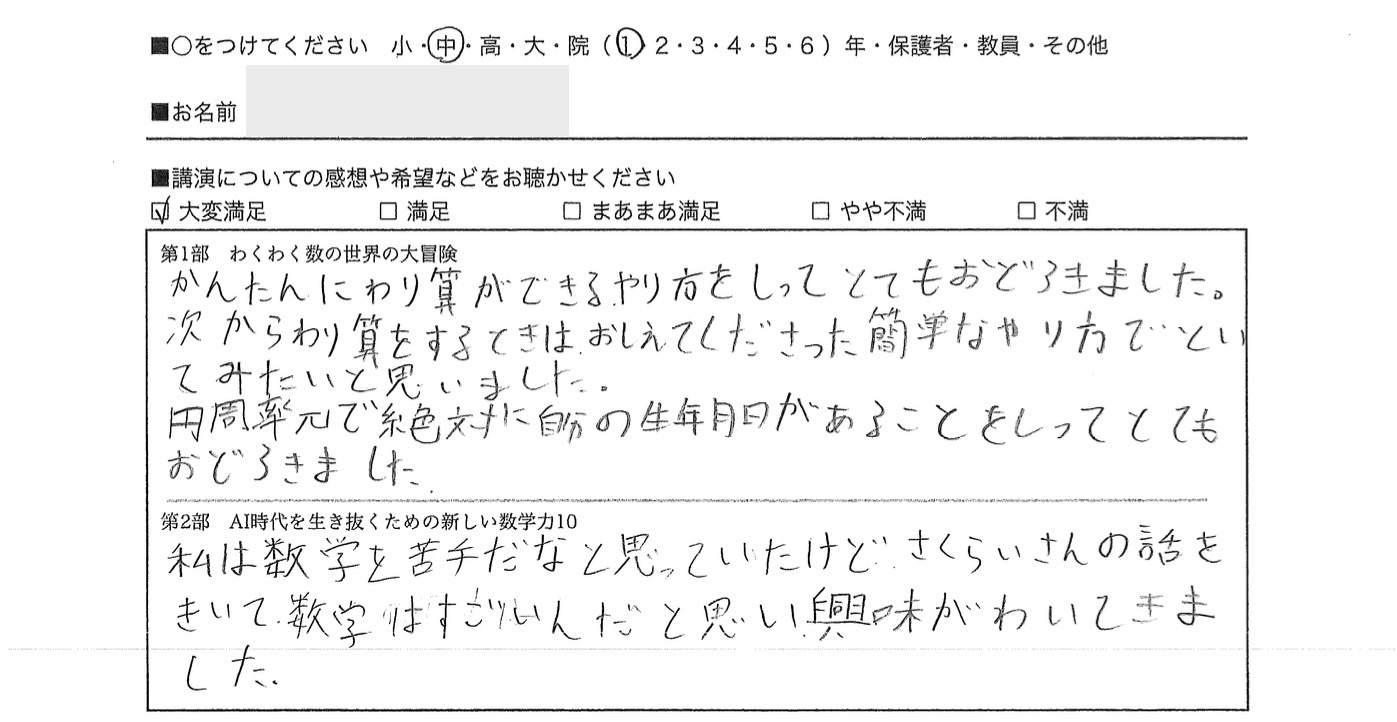 ■○をつけてください　小・中・高・大・院（1・2・3・4・5・6）年・保護者・教員・その他
■お名前
■講演についての感想や希望などをお聴かせください
☑ 大変満足　□ 満足　□ まあまあ満足　□ やや不満　□ 不満
第1部　わくわく数の世界の大冒険
かんたんにわり算ができるやり方をしってとてもおどろきました。
次からわり算をするときは、おしえてくださった簡単なやり方でとい
てみたいと思いました。
円周率π で絶対に自分の生年月日があることをしってとても
おどろきました.
第2部　AI時代を生き抜くための新しい数学力10
私は数学を苦手だなと思っていたけど、さくらいさんの話を
きいて、数学はすごいんだと思い、興味がわいてきま
した.